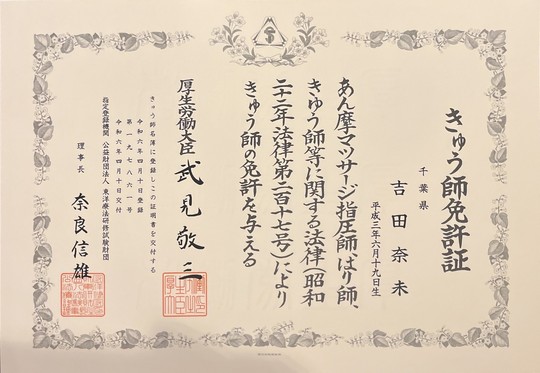 きゅう師免許証
千葉県
吉田奈未
平成三年六月十九日生
あん摩マツサージ指圧師、はり師、
きゆう師等に関する法律(昭和
二十二年法律第二百十七号)により
きゅう師の免許を与える
厚生労働大臣 武見敬三
きゅう師名簿に登録しこの証明書を交付する
令和六年四月十日登録
第一九七八六一号
令和六年四月十日交付
指定登録機関 公益財団法人 東洋療法研修試験財団
理事長 奈良信雄